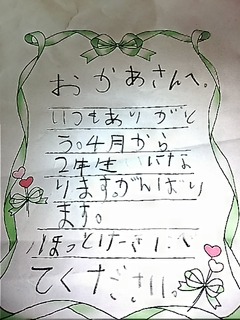 おかあさんへ。
いつもありがと
う。4月から
2年生になな
ります。がんばり
ます。
ほっとけーきたべ
てください。